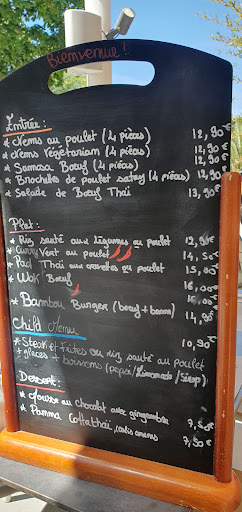 Bienvenue !
Entrée :
* Nems au poulet (4 pièces) 12,90€
* Nems Végétariam (4 pièces) 12,90€
* Samosa Bœuf (4 pièces) 12,90€
* Brochettes de poulet satay (4 pièces) 12,90€
* Salade de Bœuf Thaï 13,90€
Plat :
* Riz sauté aux légumes ou poulet 12,90€
* Curry Vert au poulet 14,50€
* Pad Thaï aux crevettes ou poulet 15,00€
* Wok Bœuf 16,00€
* Bambou Burger (bœuf + bacon) 14,90€
Child Menu
* Steak + frites ou riz sauté au poulet 10,90€
+ glaces + boissons (pepsi/limonade/sirop)
Dessert :
* Mousse au chocolat avec gingembre 7,50€
* Panna Cotta thaï, coulis ananas 7,50€